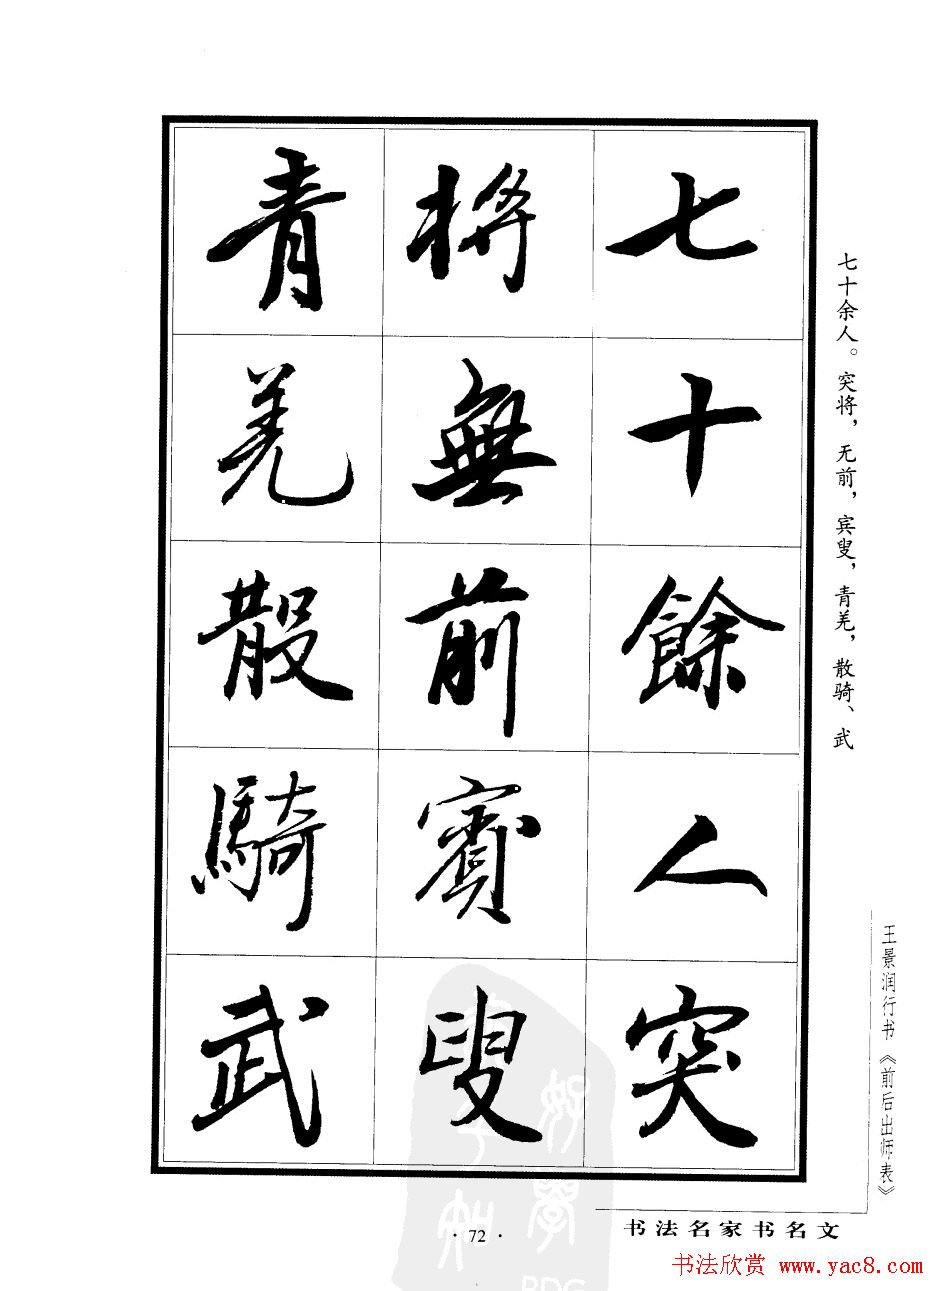 七十餘人突
將無前賓叟
青羌散騎武
七十余人。突将，无前，宾叟，青羌，散骑、武
王景润行书《前后出师表》
书法名家书名文
·72·
书法欣赏 www.yac8.com